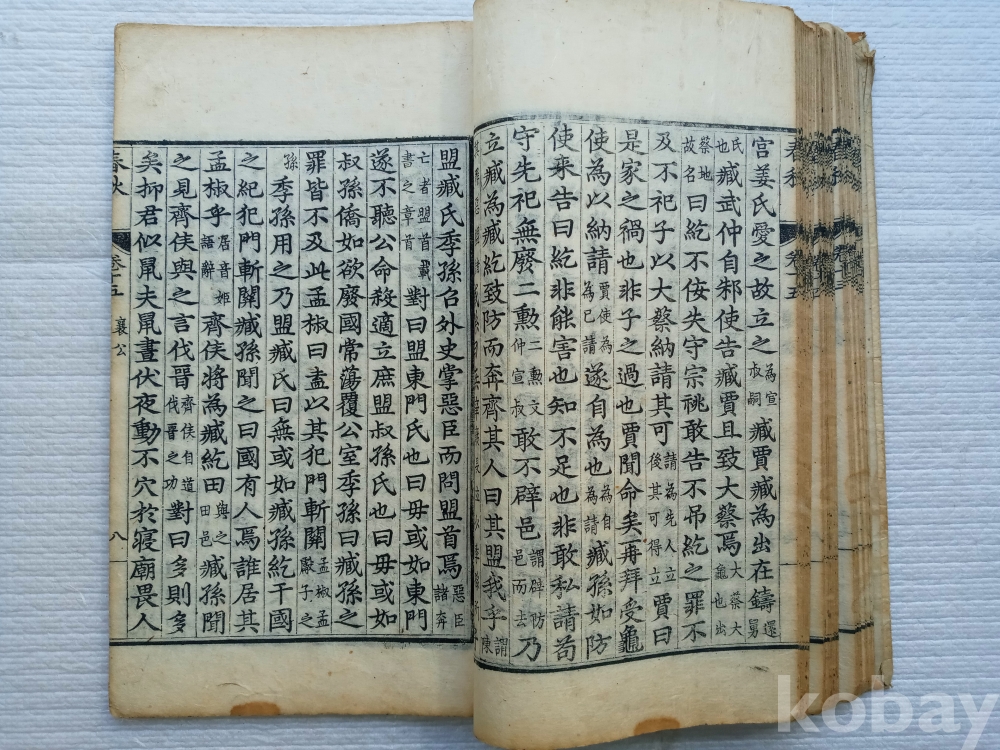 宮姜氏愛之故立之為宣叔嗣臧賈臧為出在鑄還舅
氏也臧武仲自邾使告臧賈且致大蔡焉大蔡大龜也出
蔡地故名曰紇不侫失守宗祧敢告不吊紇之罪不
及不祀子以大蔡納請其可請為先人立後其可得立賈曰
是家之禍也非子之過也賈聞命矣再拜受龜
使為以納請賈使為為已請遂自為也為自為請臧孫如防
使来告曰紇非能害也知不足也非敢私請苟
守先祀無廢二勲二勲文仲宣叔敢不辟邑謂辟防邑而去乃
立臧為臧紇致防而奔齊其人曰其盟我乎謂陳
盟臧氏季孫召外史掌惡臣而問盟首焉惡臣諸奔
亡者盟首載書之章首對曰盟東門氏也曰毋或如東門
遂不聽公命殺適立庶盟叔孫氏也曰毋或如
叔孫僑如欲廢國常蕩覆公室季孫曰臧孫之
罪皆不及此孟椒曰盍以其犯門斬關孟椒孟獻子之
孫季孫用之乃盟臧氏曰無或如臧孫紇干國
之紀犯門斬關臧孫聞之曰國有人焉誰居其
孟椒乎居音姬語辭齊侯將為臧紇田與之田邑臧孫聞
之見齊侯與之言伐晉齊侯自道伐晉之功對曰多則多
矣抑君似鼠夫鼠晝伏夜動不穴於寢廟畏人
春秋 卷十五 襄公 八
kobay